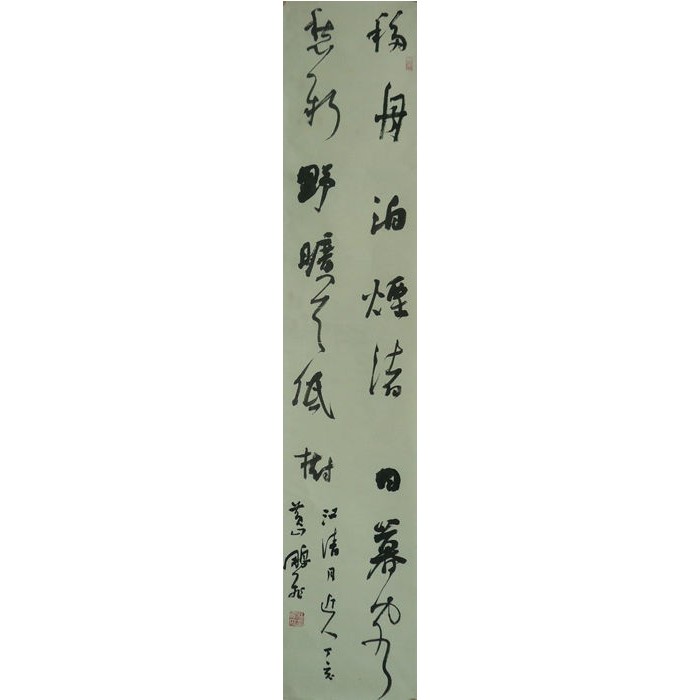 移舟泊煙渚日暮客
愁新野曠天低樹
江清月近人丁亥
黄山鵬飛